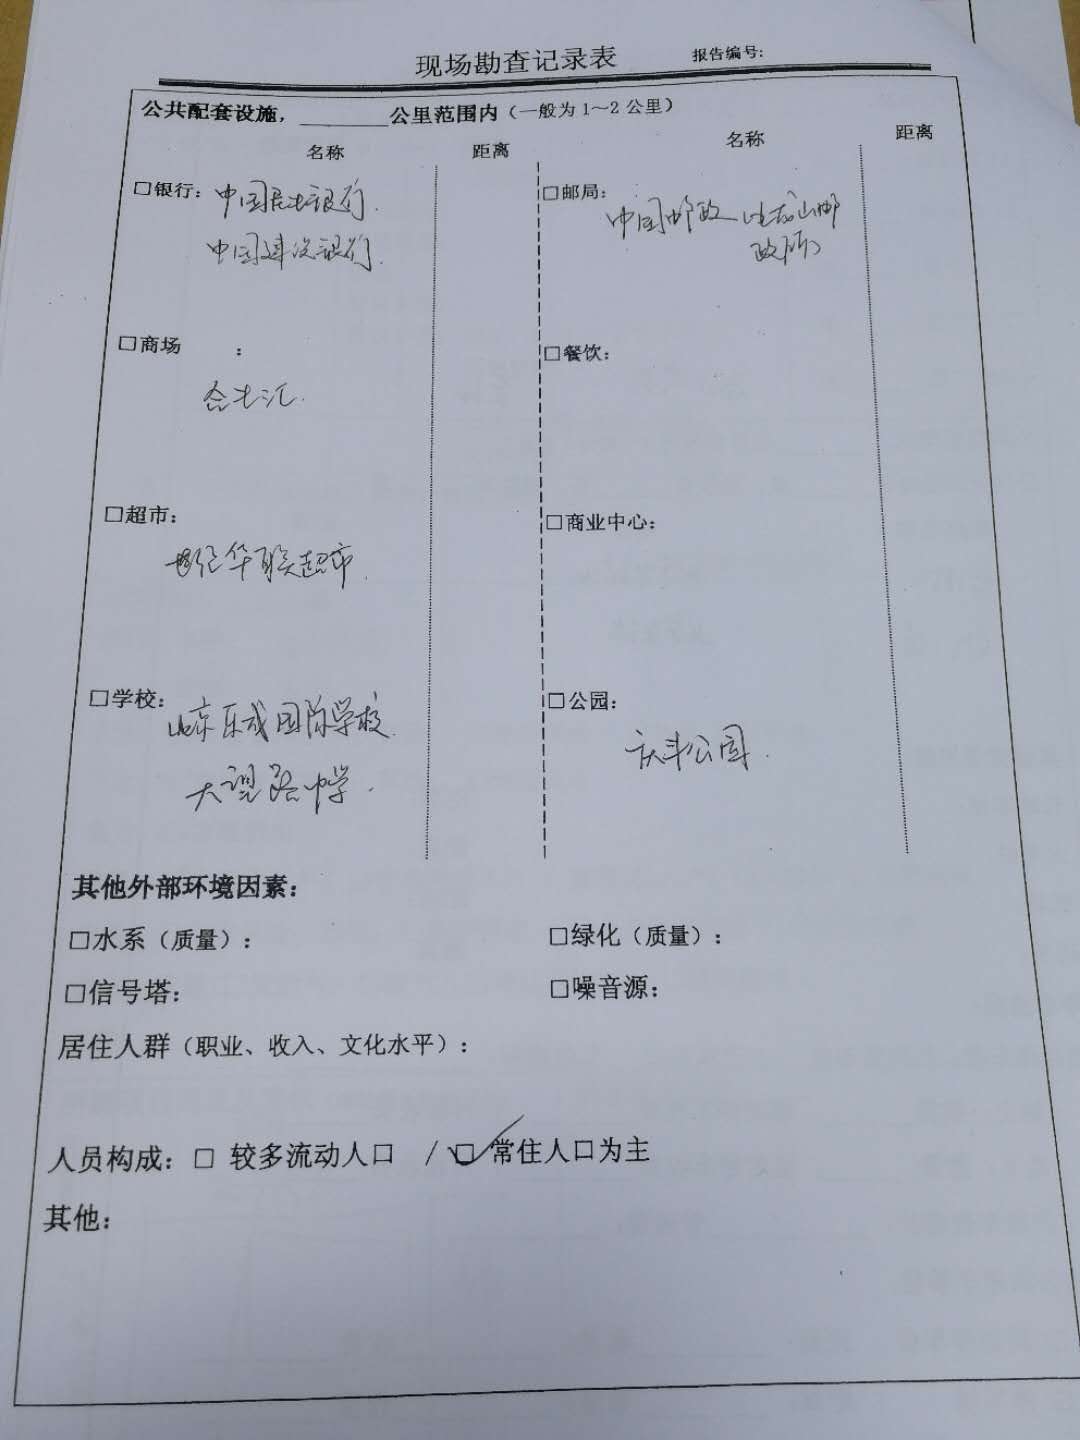 现场勘查记录表 报告编号:
公共配套设施，________公里范围内（一般为1～2公里）
名称 距离 名称 距离
□银行： 中国民生银行.
中国建设银行.
□邮局： 中国邮政 山邮
政所
□商场 ：
合生汇.
□餐饮：
□超市：
世纪华联超市.
□商业中心：
□学校： 北京乐成国际学校.
大望路中学.
□公园：
庆丰公园.
其他外部环境因素：
□水系（质量）： □绿化（质量）：
□信号塔： □噪音源：
居住人群（职业、收入、文化水平）：
人员构成：□ 较多流动人口 /☑ 常住人口为主
其他：